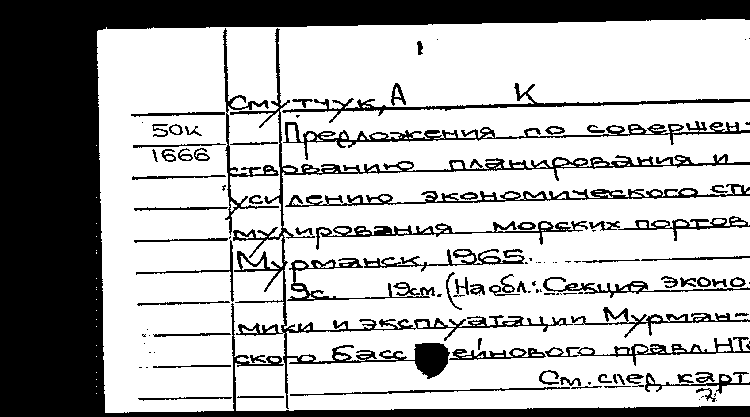 Смутчук, А К
50к Предложения по совершен-
1666 ствованию планирования и
усилению экономического сти
мулирования морских портов
Мурманск, 1965.
9с. 19см. (На обл.: Секция эконо-
мики и эксплуатации Мурман-
ского басс ейнового правл. НТО
См. след. карт